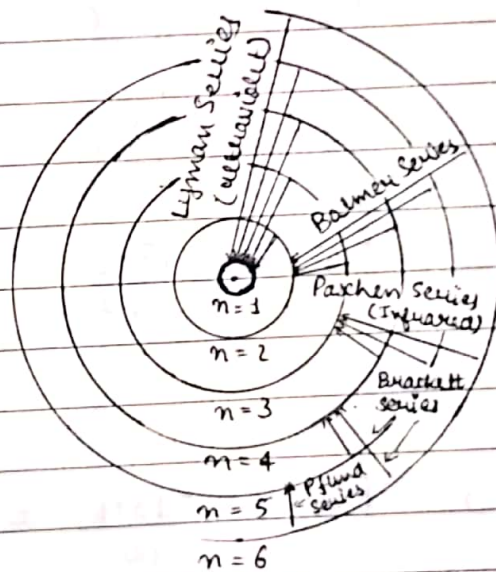 Lyman Series
(ultraviolet)
Balmer Series
Paschen Series
(Infrared)
Brackett
series
Pfund
series
n = 1
n = 2
n = 3
n = 4
n = 5
n = 6